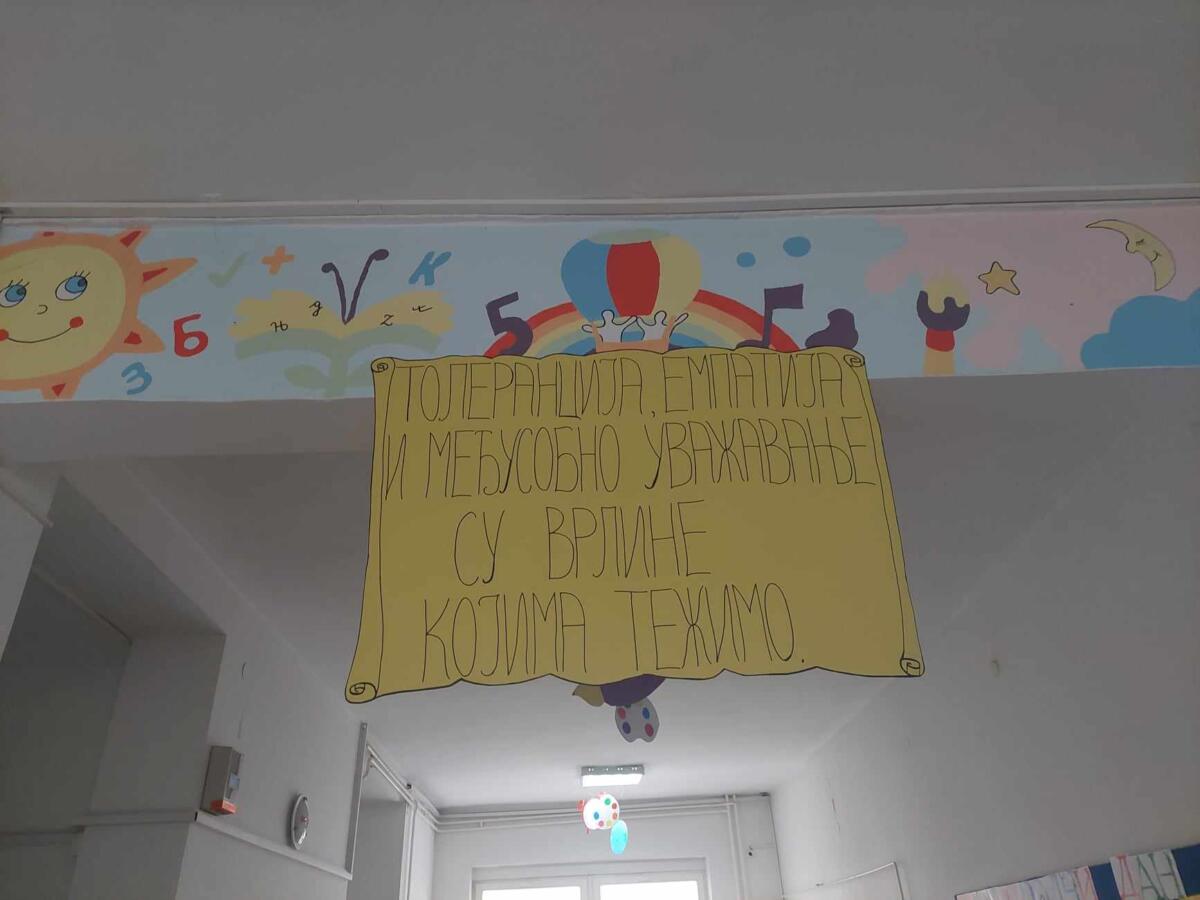 К
Б
З
њ д z t
5
ТОЛЕРАНЦИЈА, ЕМПАТИЈА
И МЕЂУСОБНО УВАЖАВАЊЕ
СУ ВРЛИНЕ
КОЈИМА ТЕЖИМО.
ДАН